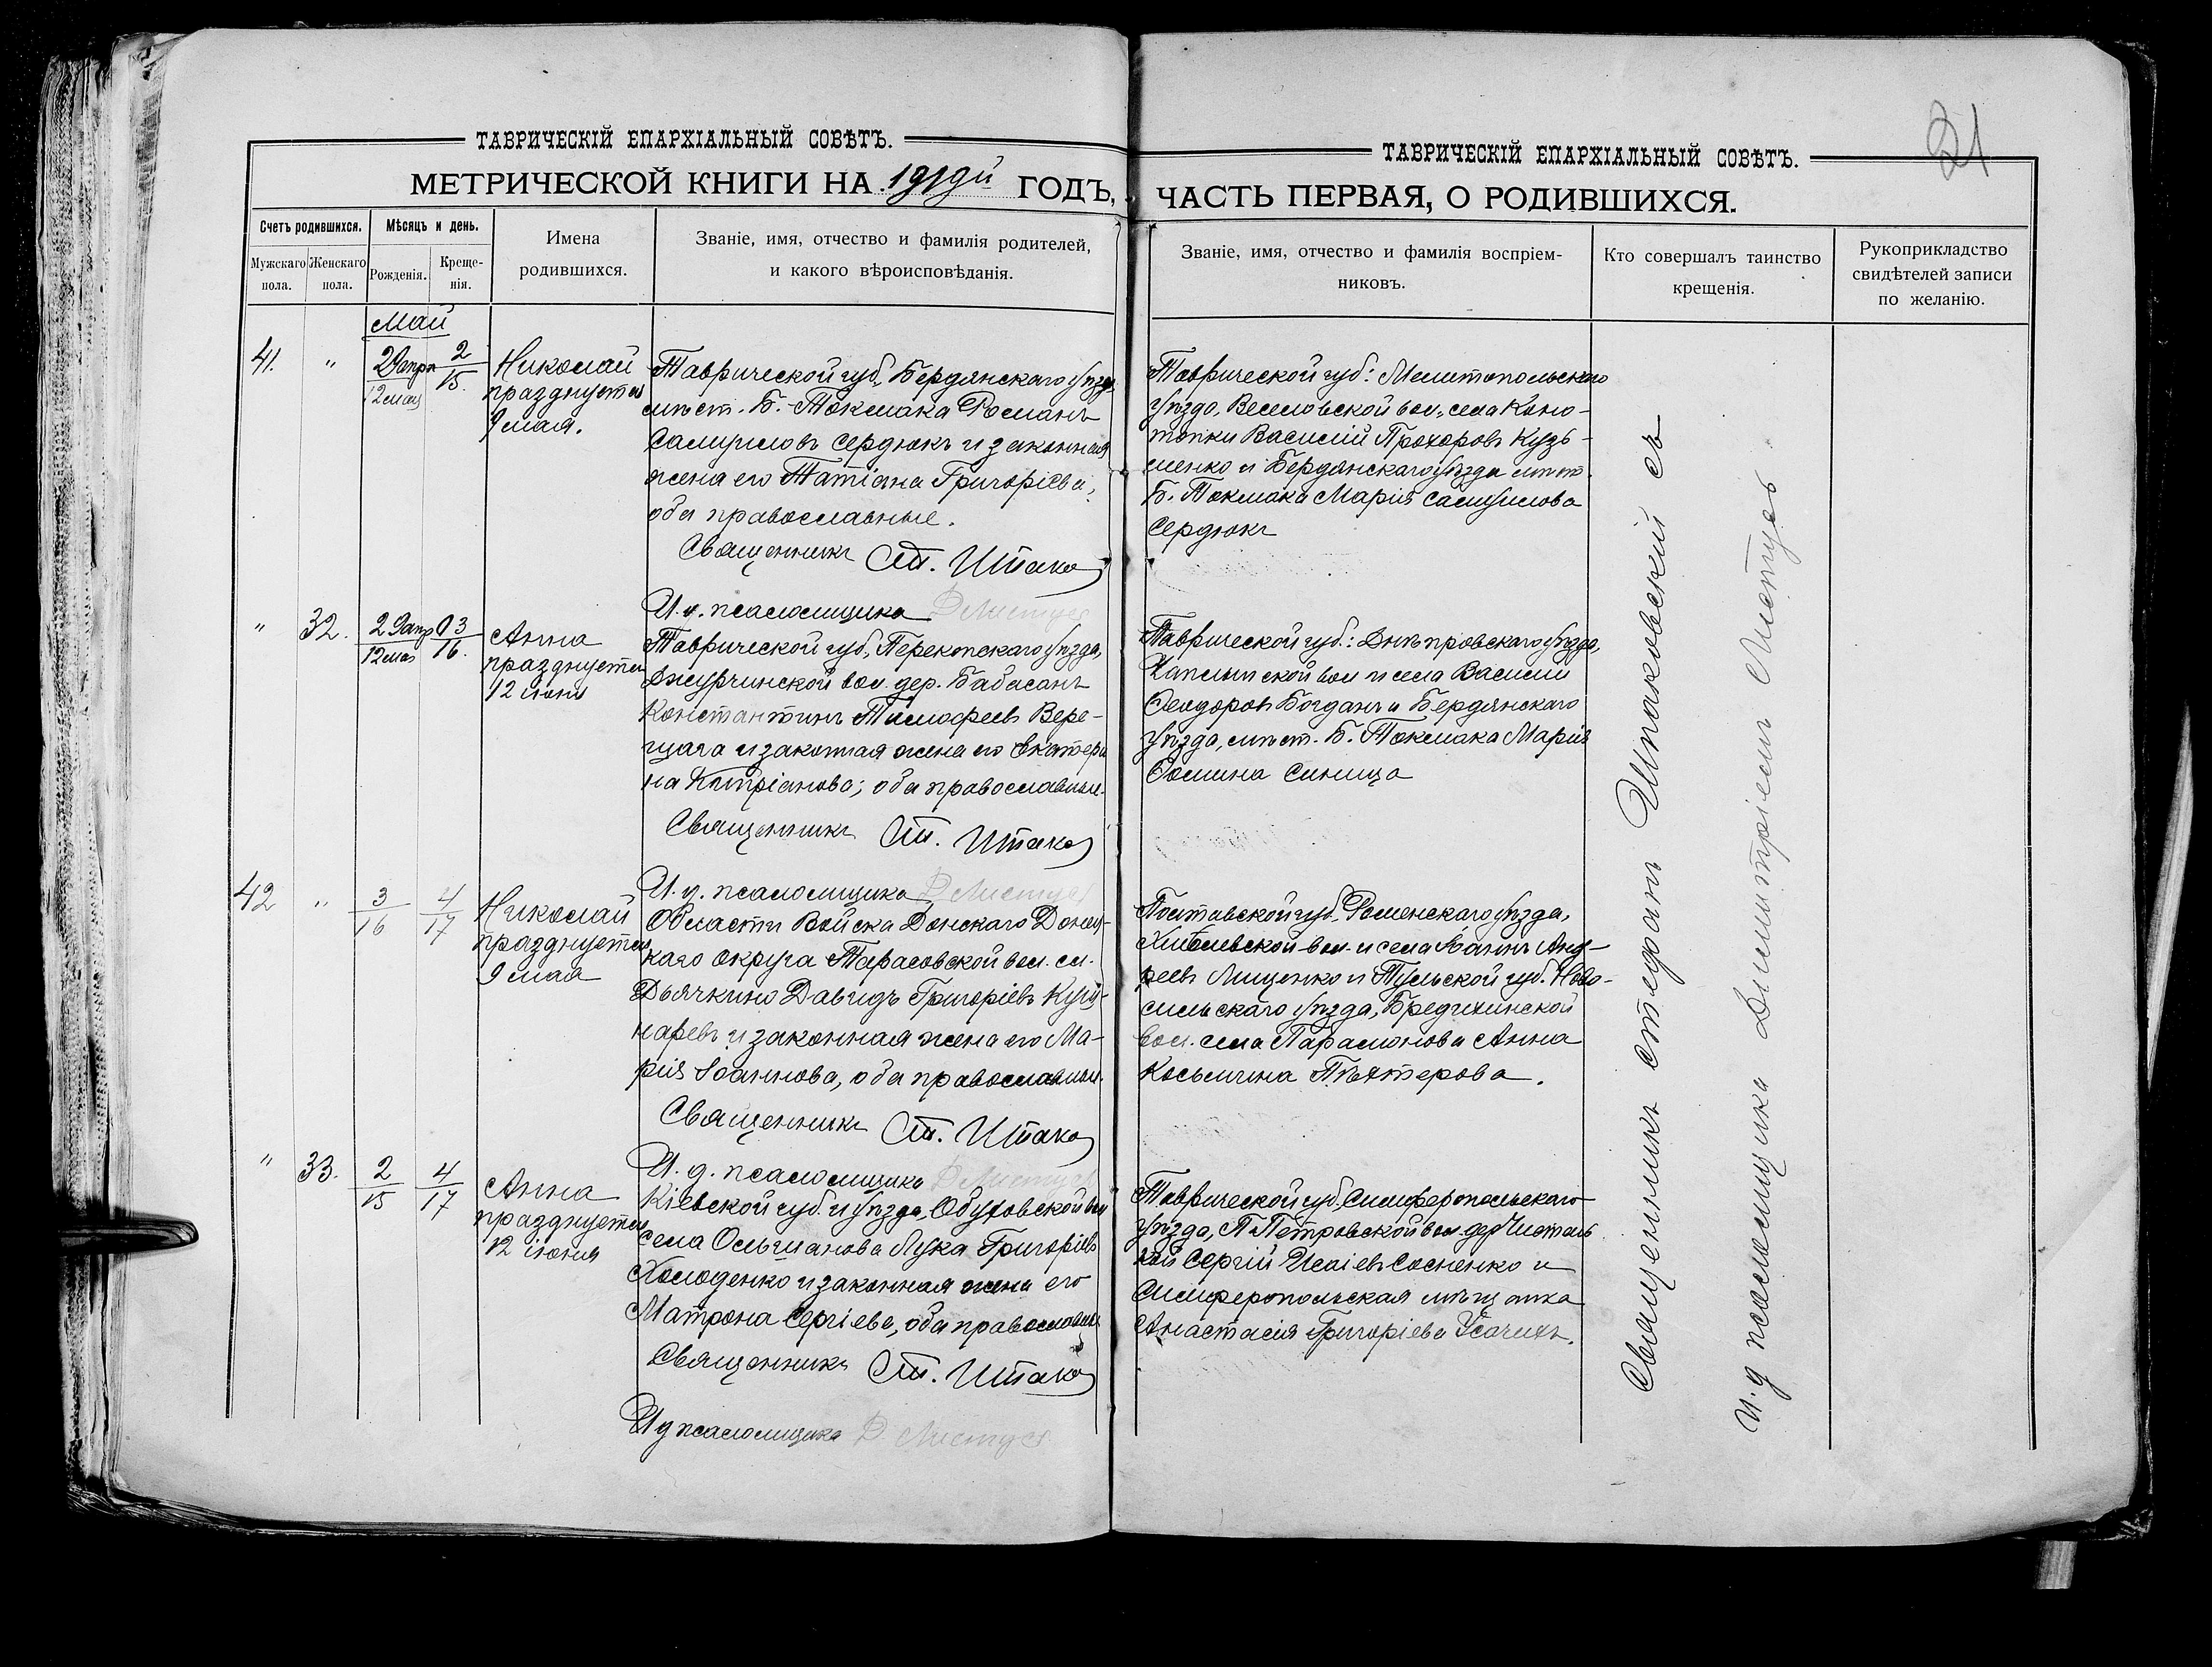 ТАВРИЧЕСКІЙ ЕПАРХІАЛЬНЫЙ СОВѢТЪ.
МЕТРИЧЕСКОЙ КНИГИ НА 1919й ГОДЪ,
Счетъ родившихся.
Мужскаго пола.
Женскаго пола.
Мѣсяцъ и день.
Рожденія.
Креще-
нія.
Имена
родившихся.
Званіе, имя, отчество и фамилія родителей,
и какого вѣроисповѣданія.
Май
41.
"
29 апр
12 мая
2
15.
Николай
празднуется
9 мая.
Таврической губ., Бердянскаго уѣзда
мѣст. Б.-Токмака Романъ
Самуиловъ Сердюкъ и законная
жена его Татіана Григоріева,
оба православные.
Священникъ Ст. Шпако
И. д. псаломщика Д Листусъ
"
32.
29 апр
12 мая
3
16.
Анна
празднуется
12 іюня
Таврической губ., Перекопскаго уѣзда,
Джурчинской вол. дер. Бабасанъ
Константинъ Тимофеевъ Вере-
щага и законная жена его Екатери
на; оба православные.
Священникъ Ст. Шпако
И. д. псаломщика Д Листусъ
42
"
3
16
4
17
Николай
празднуется
9 мая
Области Войска Донскаго Донец-
каго округа Тарасовской вол. сл.
Дьячкино Давидъ Григоріевъ Куш-
наревъ и законная жена его Ма-
рія Іоаннова, оба православные.
Священникъ Ст. Шпако
И. д. псаломщика Д Листусъ
"
33.
2
15
4
17
Анна
празднуется
12 іюня
Кіевской губ. и уѣзда, Обуховской вол
села Ольшанова Лука Григоріевъ
Холоденко и законная жена его
Матрона Сергіева, оба православные
Священникъ Ст. Шпако
И д псаломщика Д. Листусъ
21
ТАВРИЧЕСКІЙ ЕПАРХІАЛЬНЫЙ СОВѢТЪ.
ЧАСТЬ ПЕРВАЯ, О РОДИВШИХСЯ.
Званіе, имя, отчество и фамилія воспріем-
никовъ.
Кто совершалъ таинство
крещенія.
Рукоприкладство
свидѣтелей записи
по желанію.
Таврической губ.: Мелитопольскаго
уѣзда, Веселовской вол., села Коно-
топки Василій Прохоровъ Кузь-
менко и Бердянскаго уѣзда мѣст.
Б. Токмака Марія Самуилова
Сердюкъ
Таврической губ.: Днѣпровскаго уѣзда,
Каплынской вол и села Василій
Феодоровъ Богданъ и Бердянскаго
уѣзда, мѣст. Б. Токмака Марія
Фомина Синица
Полтавской губ., Роменскаго уѣзда,
вол. и села Іоаннъ Анд-
реевъ Лищенко и Тульской губ. Ново-
сильскаго уѣзда, Бредихинской
вол. села Парамонова Анна
Косьмина Пѣхтерова.
Таврической губ. Симферопольскаго
уѣзда, П Петровской вол. дер
Сергій Исаіевъ Сосненко и
Симферопольская мѣщанка
Анастасія Григоріева
Священникъ Стефанъ Шпаковскій съ
И. д псаломщика Димитріемъ Листусъ.